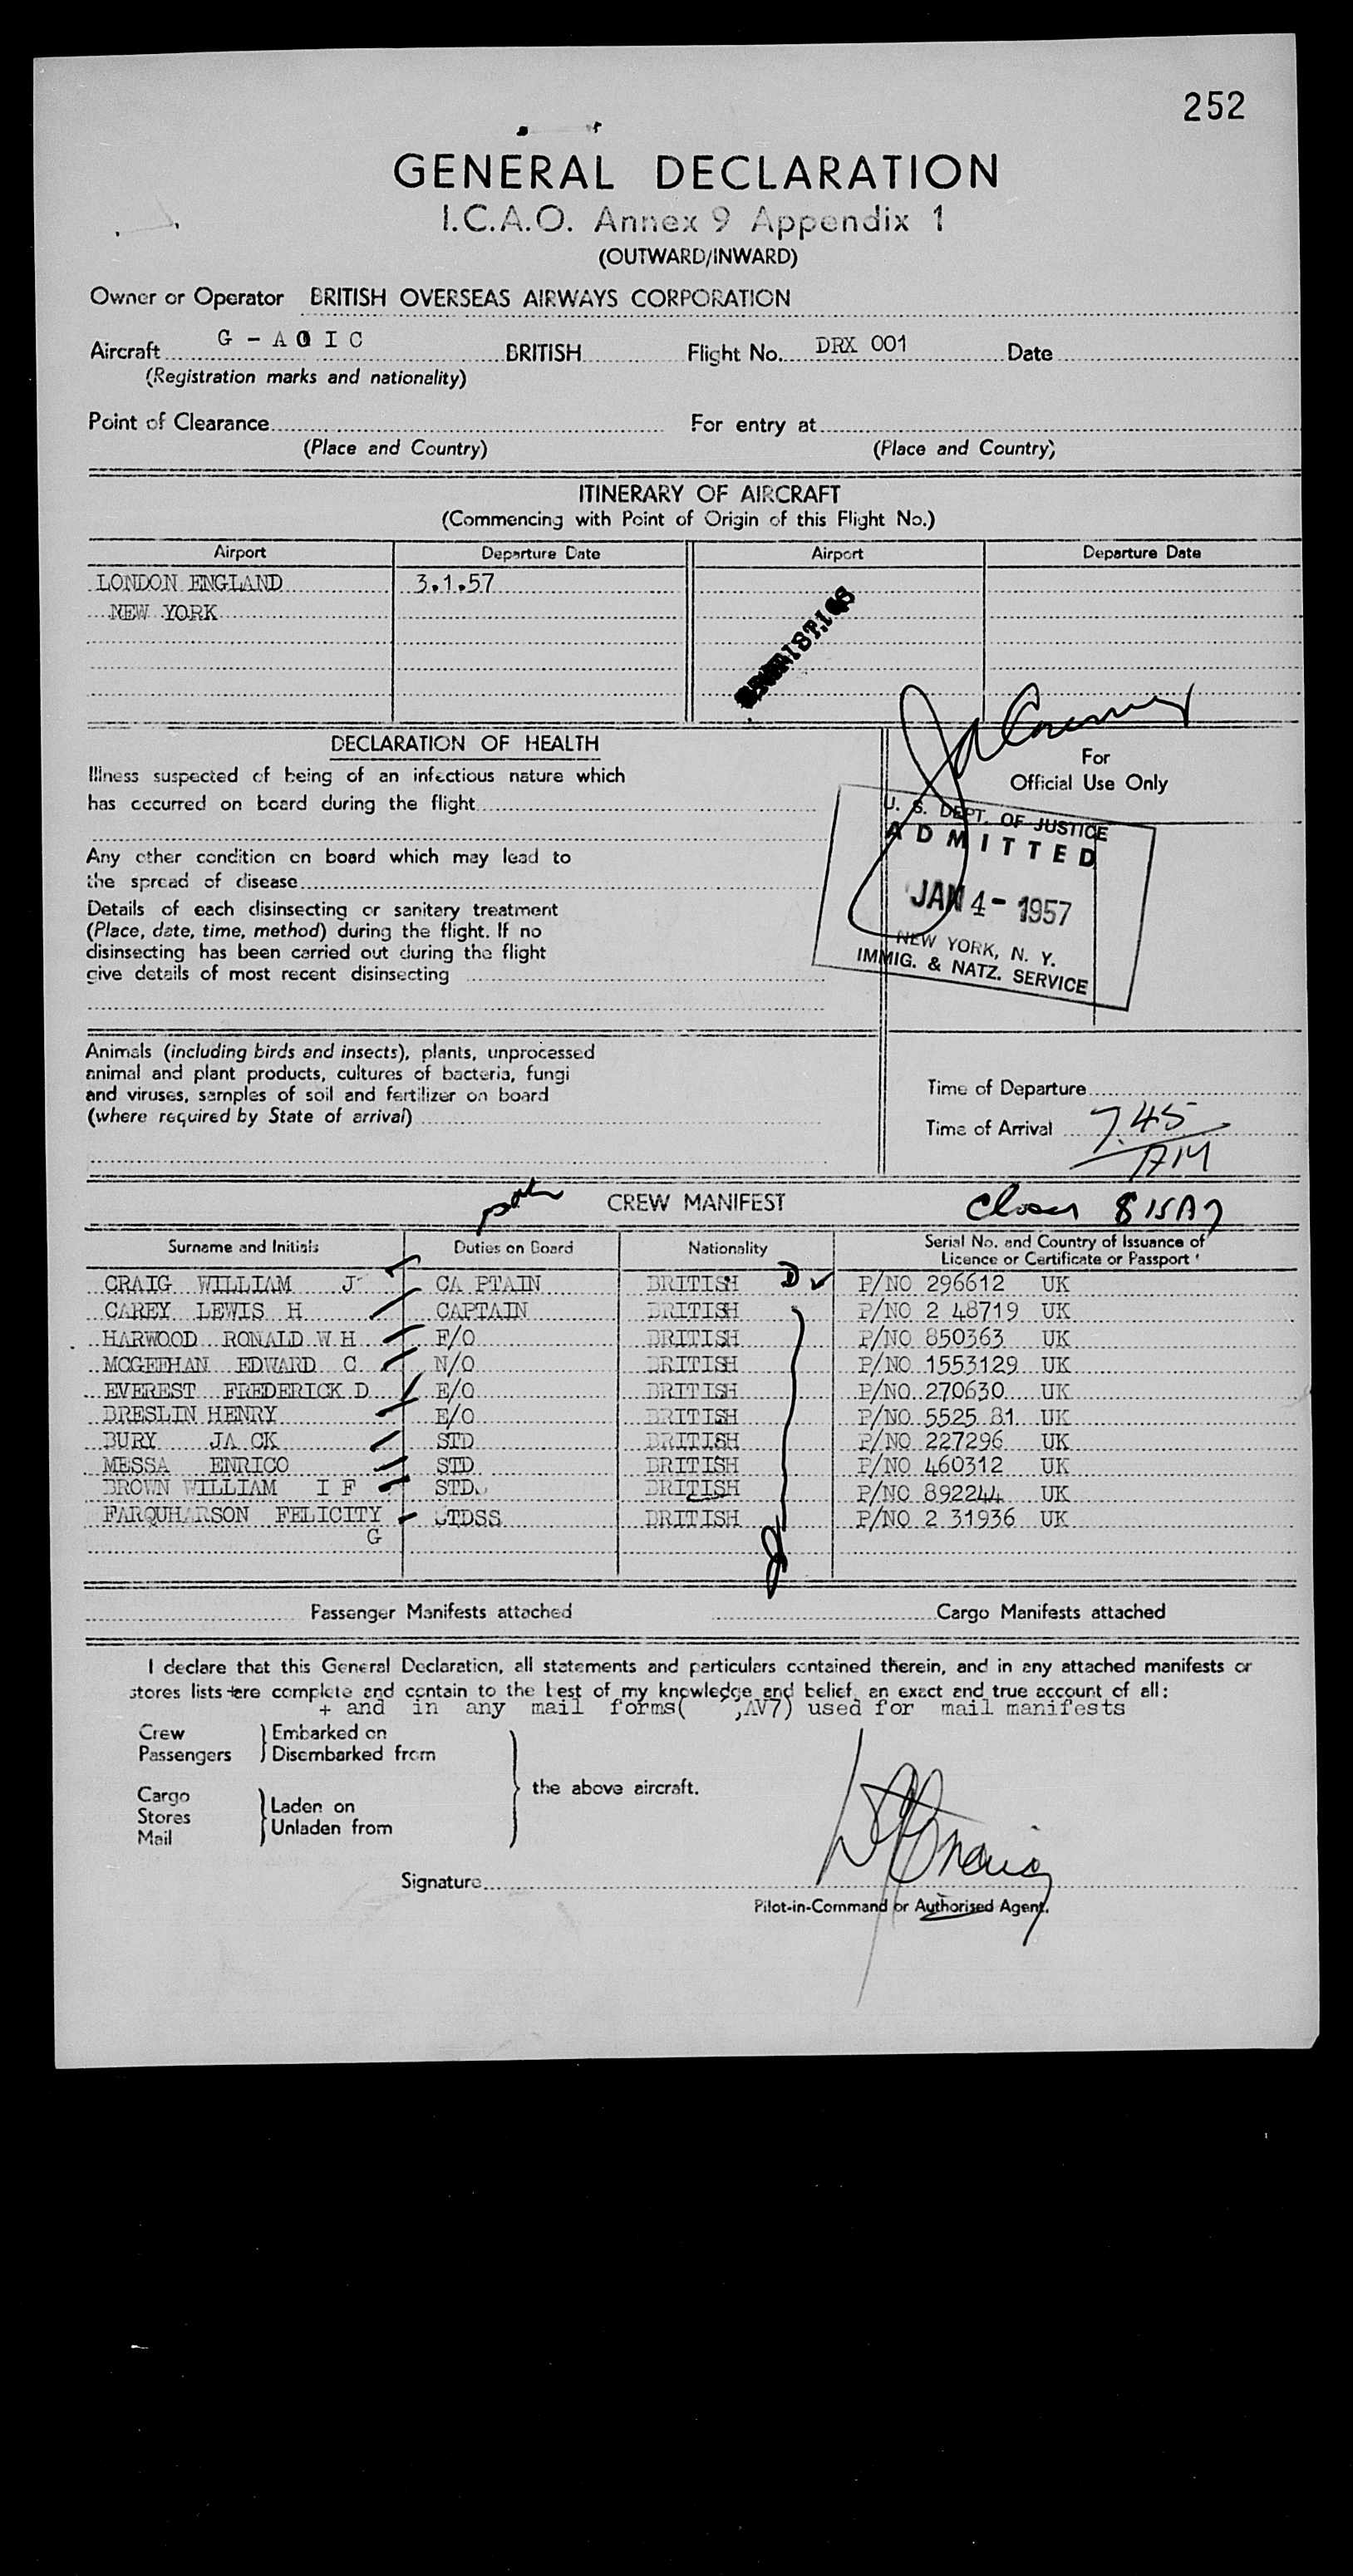 252
GENERAL DECLARATION
I.C.A.O. Annex 9 Appendix 1
(OUTWARD/INWARD)
Owner or Operator BRITISH OVERSEAS AIRWAYS CORPORATION
Aircraft G - A O I C BRITISH Flight No. DRX 001 Date
(Registration marks and nationality)
Point of Clearance For entry at
(Place and Country) (Place and Country)
ITINERARY OF AIRCRAFT
(Commencing with Point of Origin of this Flight No.)
Airport Departure Date Airport Departure Date
LONDON ENGLAND 3.1.57
NEW YORK
DECLARATION OF HEALTH
For
Official Use Only
Illness suspected of being of an infectious nature which
has occurred on board during the flight
Any other condition on board which may lead to
the spread of disease
Details of each disinsecting or sanitary treatment
(Place, date, time, method) during the flight. If no
disinsecting has been carried out during the flight
give details of most recent disinsecting
U. S. DEPT. OF JUSTICE
ADMITTED
JAN 4 - 1957
NEW YORK, N. Y.
IMMIG. & NATZ. SERVICE
Animals (including birds and insects), plants, unprocessed
animal and plant products, cultures of bacteria, fungi
and viruses, samples of soil and fertilizer on board
(where required by State of arrival)
Time of Departure
Time of Arrival 7.45 AM
CREW MANIFEST
Surname and Initials Duties on Board Nationality Serial No. and Country of Issuance of
Licence or Certificate or Passport
CRAIG WILLIAM J CA PTAIN BRITISH D P/NO 296612 UK
CAREY LEWIS H CAPTAIN BRITISH P/NO 2 48719 UK
HARWOOD RONALD W H F/O BRITISH P/NO 850363 UK
MCGEEHAN EDWARD C N/O BRITISH P/NO 1553129 UK
EVEREST FREDERICK D E/O BRITISH P/NO 270630 UK
BRESLIN HENRY E/O BRITISH P/NO 5525 81 UK
BURY JA CK STD BRITISH P/NO 227296 UK
MESSA ENRICO STD BRITISH P/NO 460312 UK
BROWN WILLIAM I F STD. BRITISH P/NO 892244 UK
FARQUHARSON FELICITY STDSS BRITISH P/NO 2 31936 UK
G
Passenger Manifests attached Cargo Manifests attached
I declare that this General Declaration, all statements and particulars contained therein, and in any attached manifests or
stores lists + are complete and contain to the best of my knowledge and belief, an exact and true account of all:
+ and in any mail forms( ,AV7) used for mail manifests
Crew Embarked on
Passengers Disembarked from
the above aircraft.
Cargo
Stores Laden on
Mail Unladen from
Signature
Pilot-in-Command or Authorised Agent.